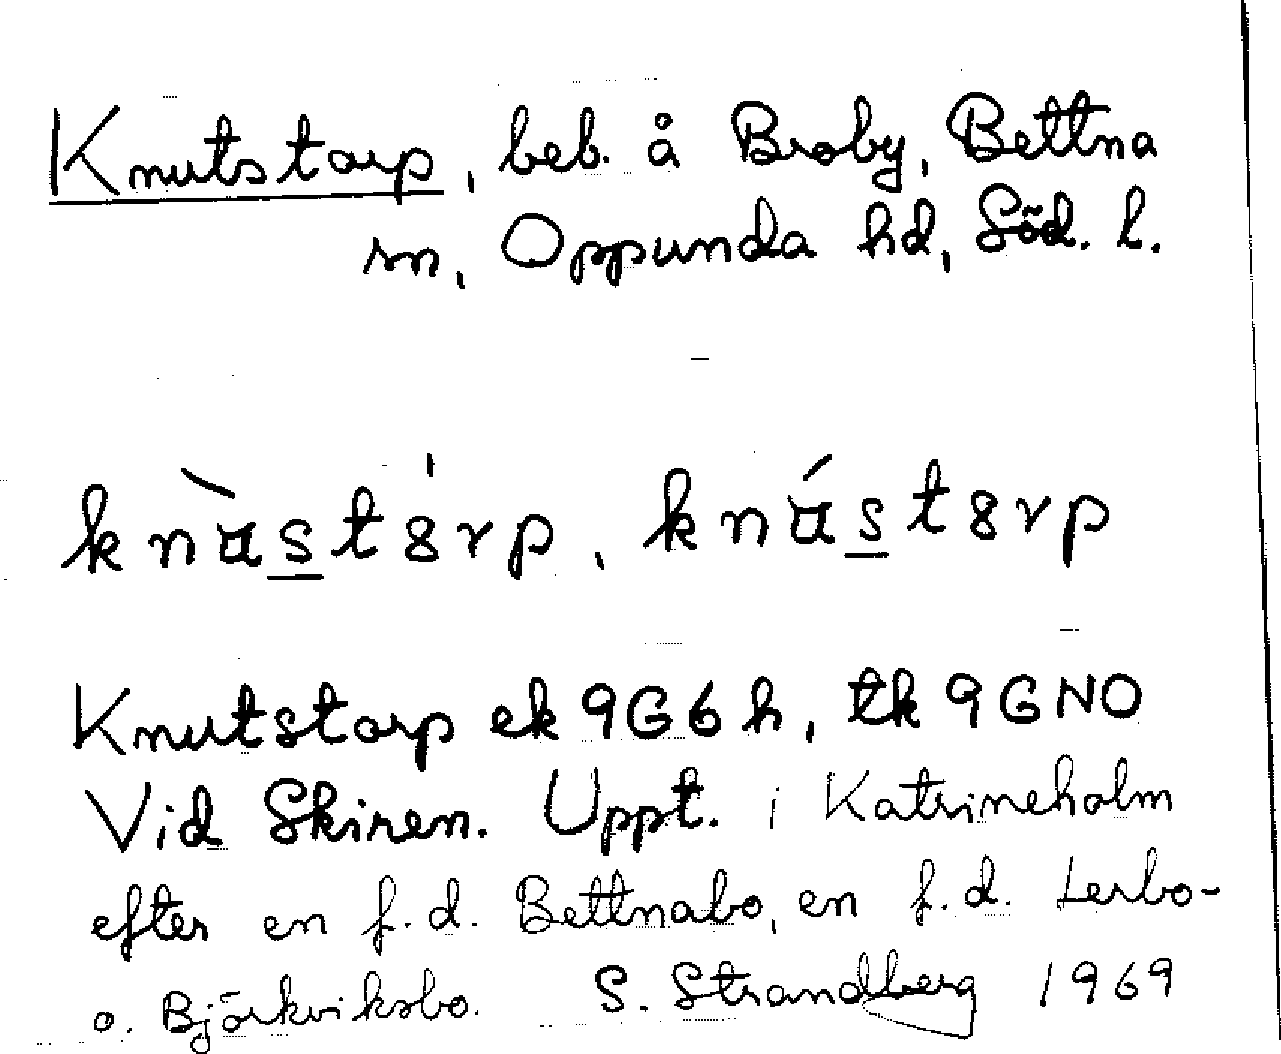 Knutstorp, beb. å Broby, Bettna
sn, Oppunda hd, Söd. l.
knùstó̤rp, knústo̤rp
Knutstorp ek 9G6h, tk 9GNO
Vid Skiren. Uppt. i Katrineholm
efter en f.d. Bettnabo, en f.d. Lerbo-
o. Björkviksbo. S. Strandberg 1969